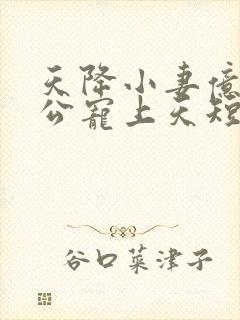 天降小妻億
公寵上天短
谷口菜津子